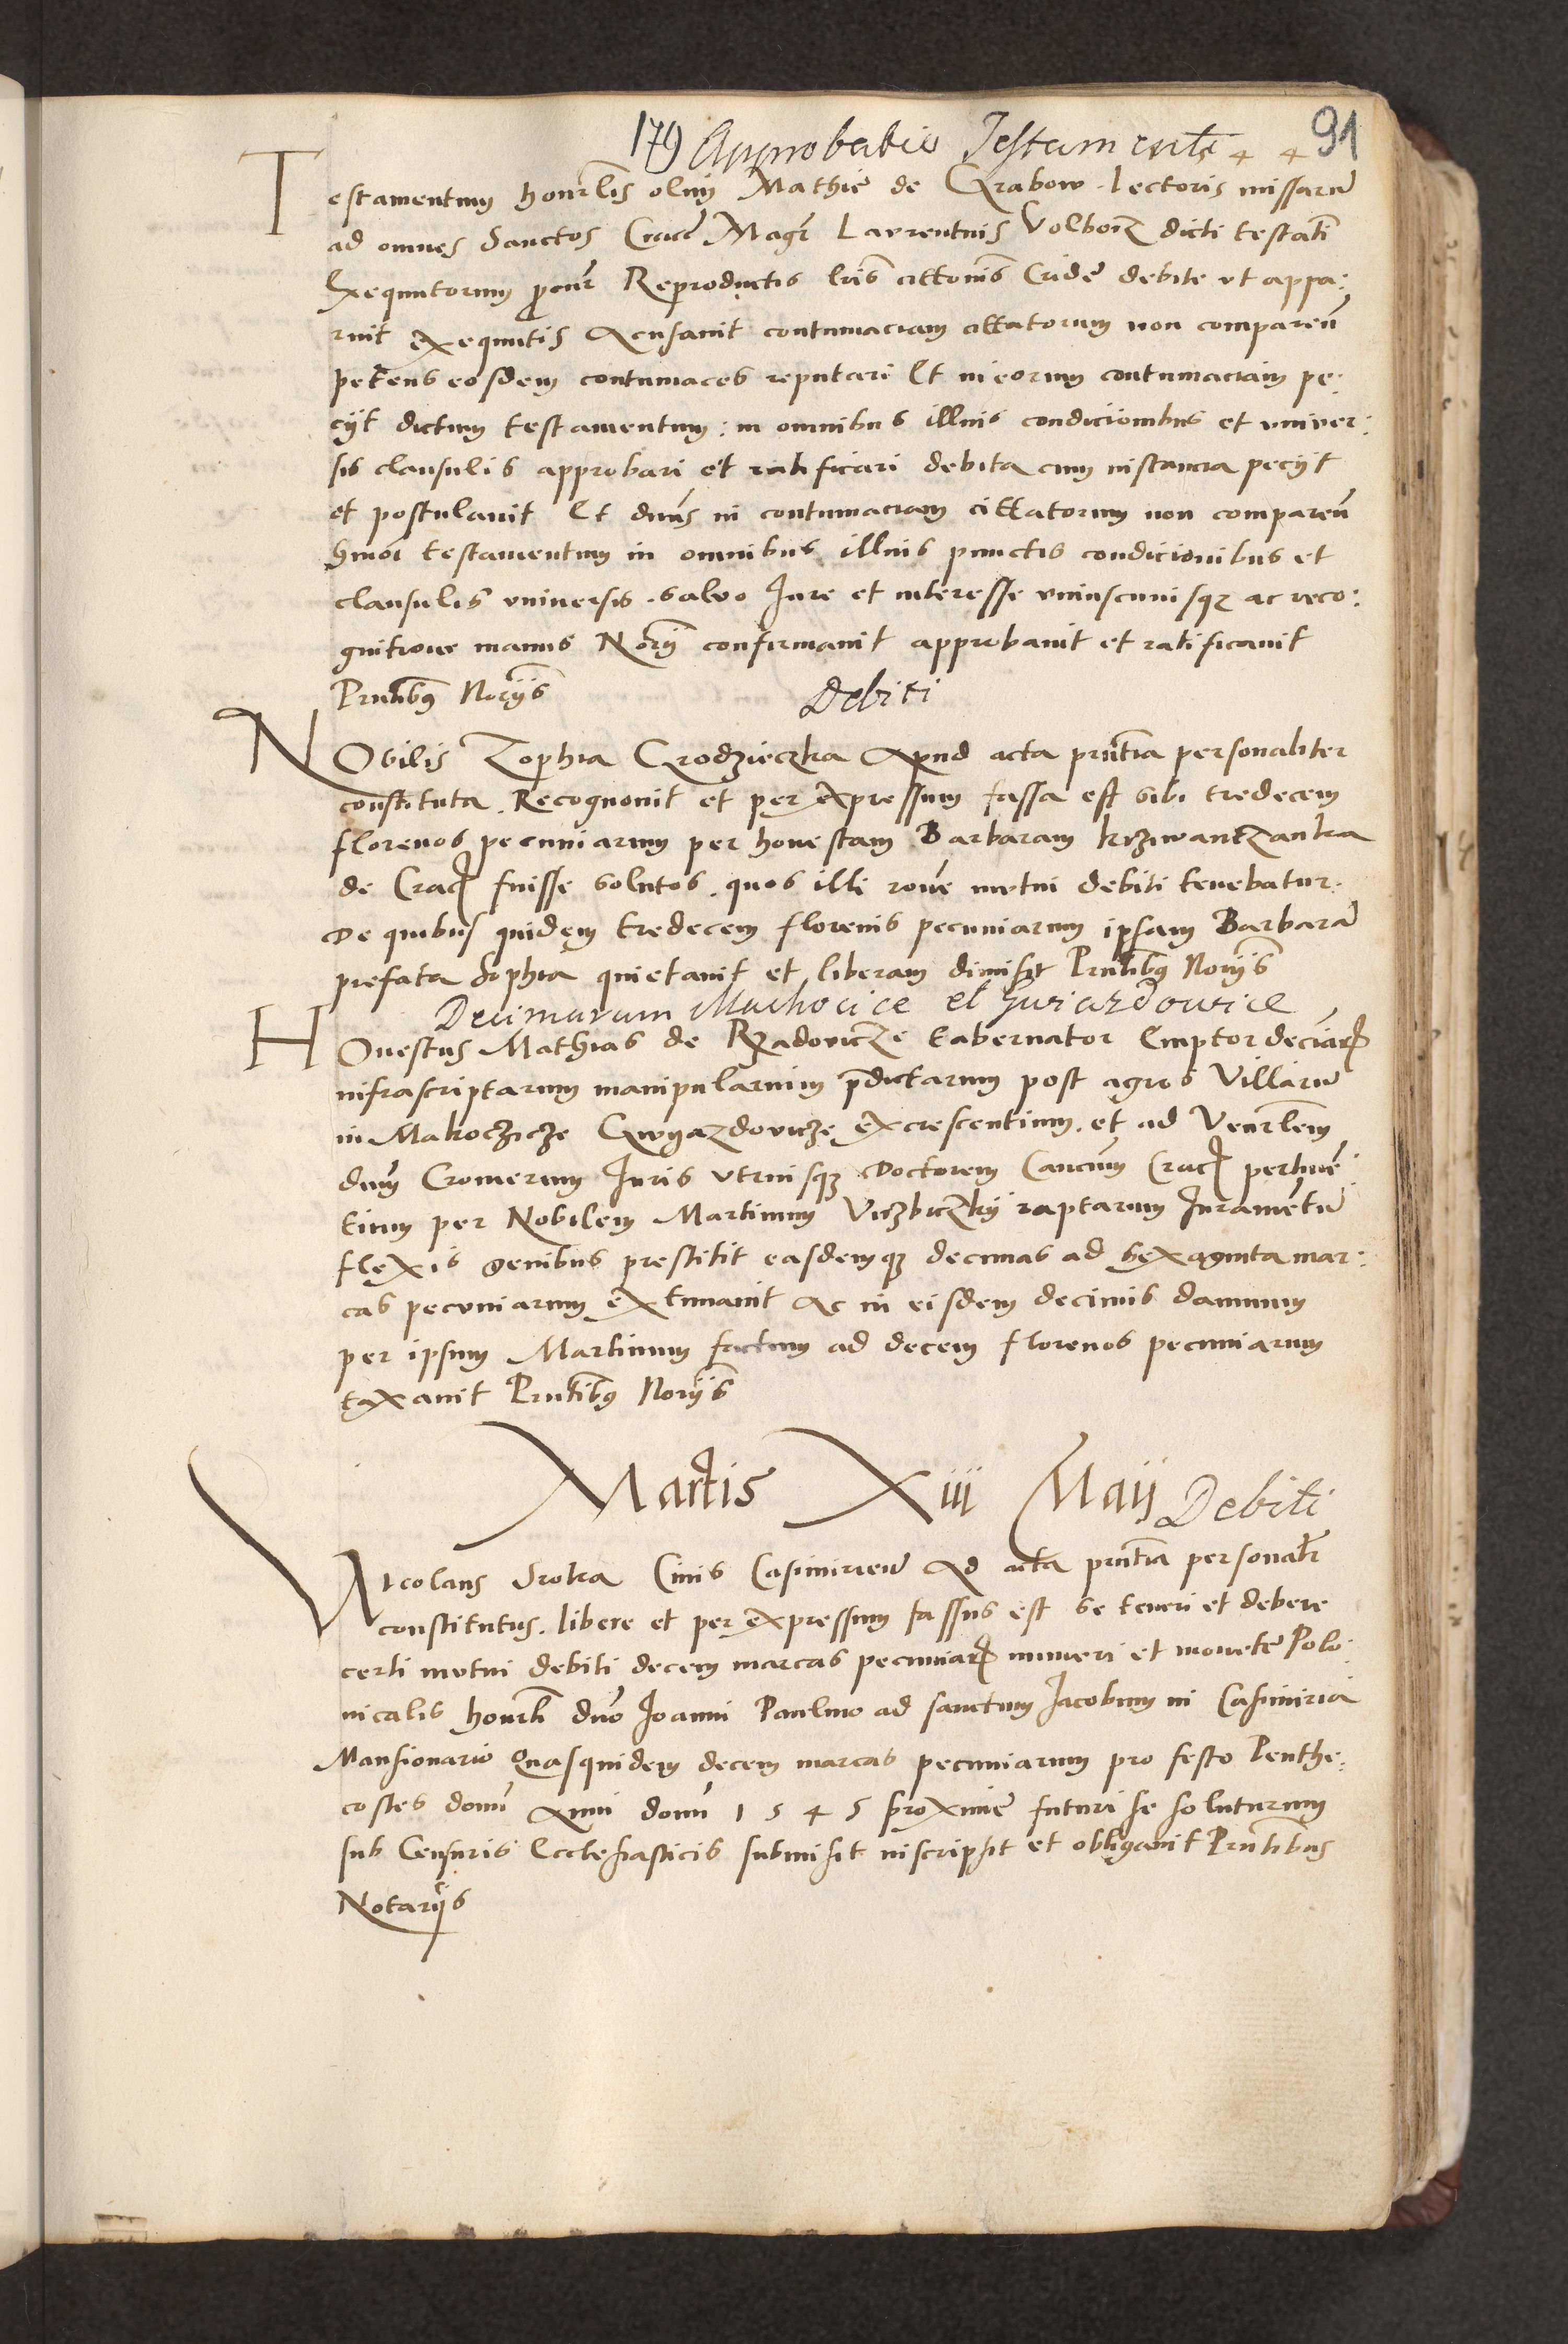 179 Approbatio Testamenti 4 4 91
Testamentum honrlis olim Mathie de Grabow lectoris missarū
ad omnes Sanctos Cracē Magr Laurentius Volborz dicti testati
Exequutorum procur Reproductis lris cittonis Eidē debite vt appa:
ruit exequutis Acusauit contumaciam cittatorum non compareñ
petens eosdem contumaces reputari Et in eorum contumaciam pe:
cyt dictum testamentum: in omnibus illius condicionibus et vniuer:
sis clausulis approbari et ratificari debita cum instancia pecyt
et postulauit Et dnus in contumaciam cittatorum non compareñ
hmoi testamentum in omnibus illius punctis condicionibus et
clausulis vniuersis saluo Jure et interesse vniuscuiusqz ac reco:
gnitione manus Norij confirmauit approbauit et ratificauit
Prntibus Norijs
Debiti
NObilis Zophia Grodzieczka Apud acta prntia personaliter
constituta. Recognouit et per expressum fassa est sibi tredecem
florenos pecuniarum per honestam Barbaram krziwantzanka
de Crac fuisse solutos. quos illi rone mutui debiti tenebatur.
De quibus quidem tredecem florenis pecuniarum ipsam Barbarā
prefata Sophia quietauit et liberam dimisit Prntibus Norijs
Decimarum Machocice et Gwiazdowice
HOnestus Mathias de Rzadovicze tabernator Emptor deciar
infrascriptarum manipularium pdictarum post agros Villarū
in Makoczicze Gwyazdovicze excrescentium. et ad Venrlem
dnum Cromerum Juris vtriusqz Doctorem Cancum Crac pertinē
tium per Nobilem Martinum raptarum Juramētū
flexis genibus prestitit easdemqz decimas ad sexaginta mar:
cas pecuniarum extimauit Ac in eisdem decimis damnum
per ipsum Martinum factum ad decem florenos pecuniarum
taxauit Prntibus Norijs
Martis Xiii Maij Debiti
NIcolaus Sroka Ciuis Casimirieñ Ad acta prntia personalr
constitutus. libere et per expressum fassus est se teneri et debere
certi mutui debiti decem marcas pecuniar numeri et monetē Polo:
nicalis honrli dno Joanni Paulino ad sanctum Jacobum in Casimiria
Mansionario Quasquidem decem marcas pecuniarum pro festo Penthe:
costes domi Anni domi 1545 proximē futuri se soluturum
sub Censuris Ecclesiasticis submisit inscripsit et obligauit Prntibus
Notarijs